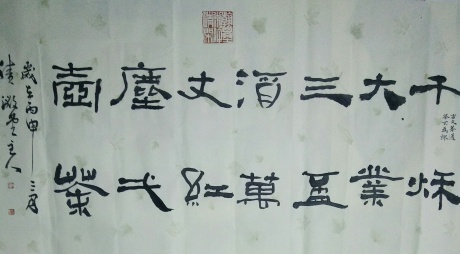 千秌
大業
三盃
酒萬
丈紅
塵弌
壺茶
歲在丙申三月
堂主人